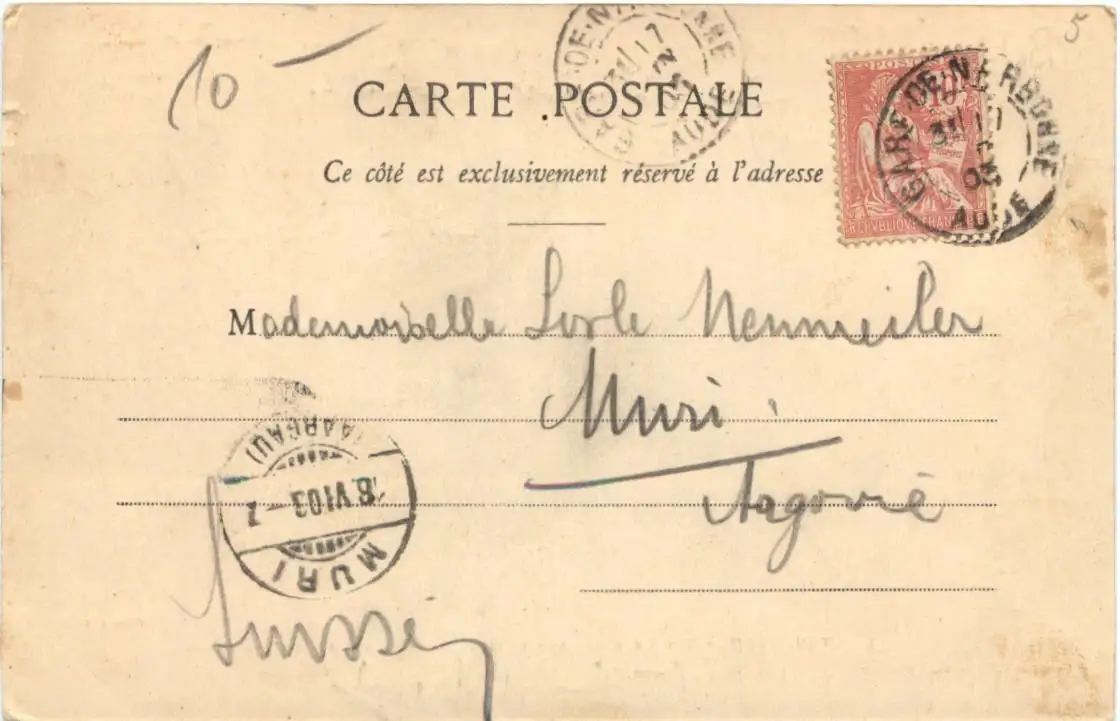 10
5
CARTE POSTALE
Ce côté est exclusivement réservé à l'adresse
POSTES
10
REPUBLIQUE FRANÇAISE
GARE DE NARBONNE
17
03
AUDE
GARE DE NARBONNE
17
AUDE
Mademoiselle Neumeiler
Muri
Argovie
(AARGAU)
18 VI 03 - 7
MURI
Suisse